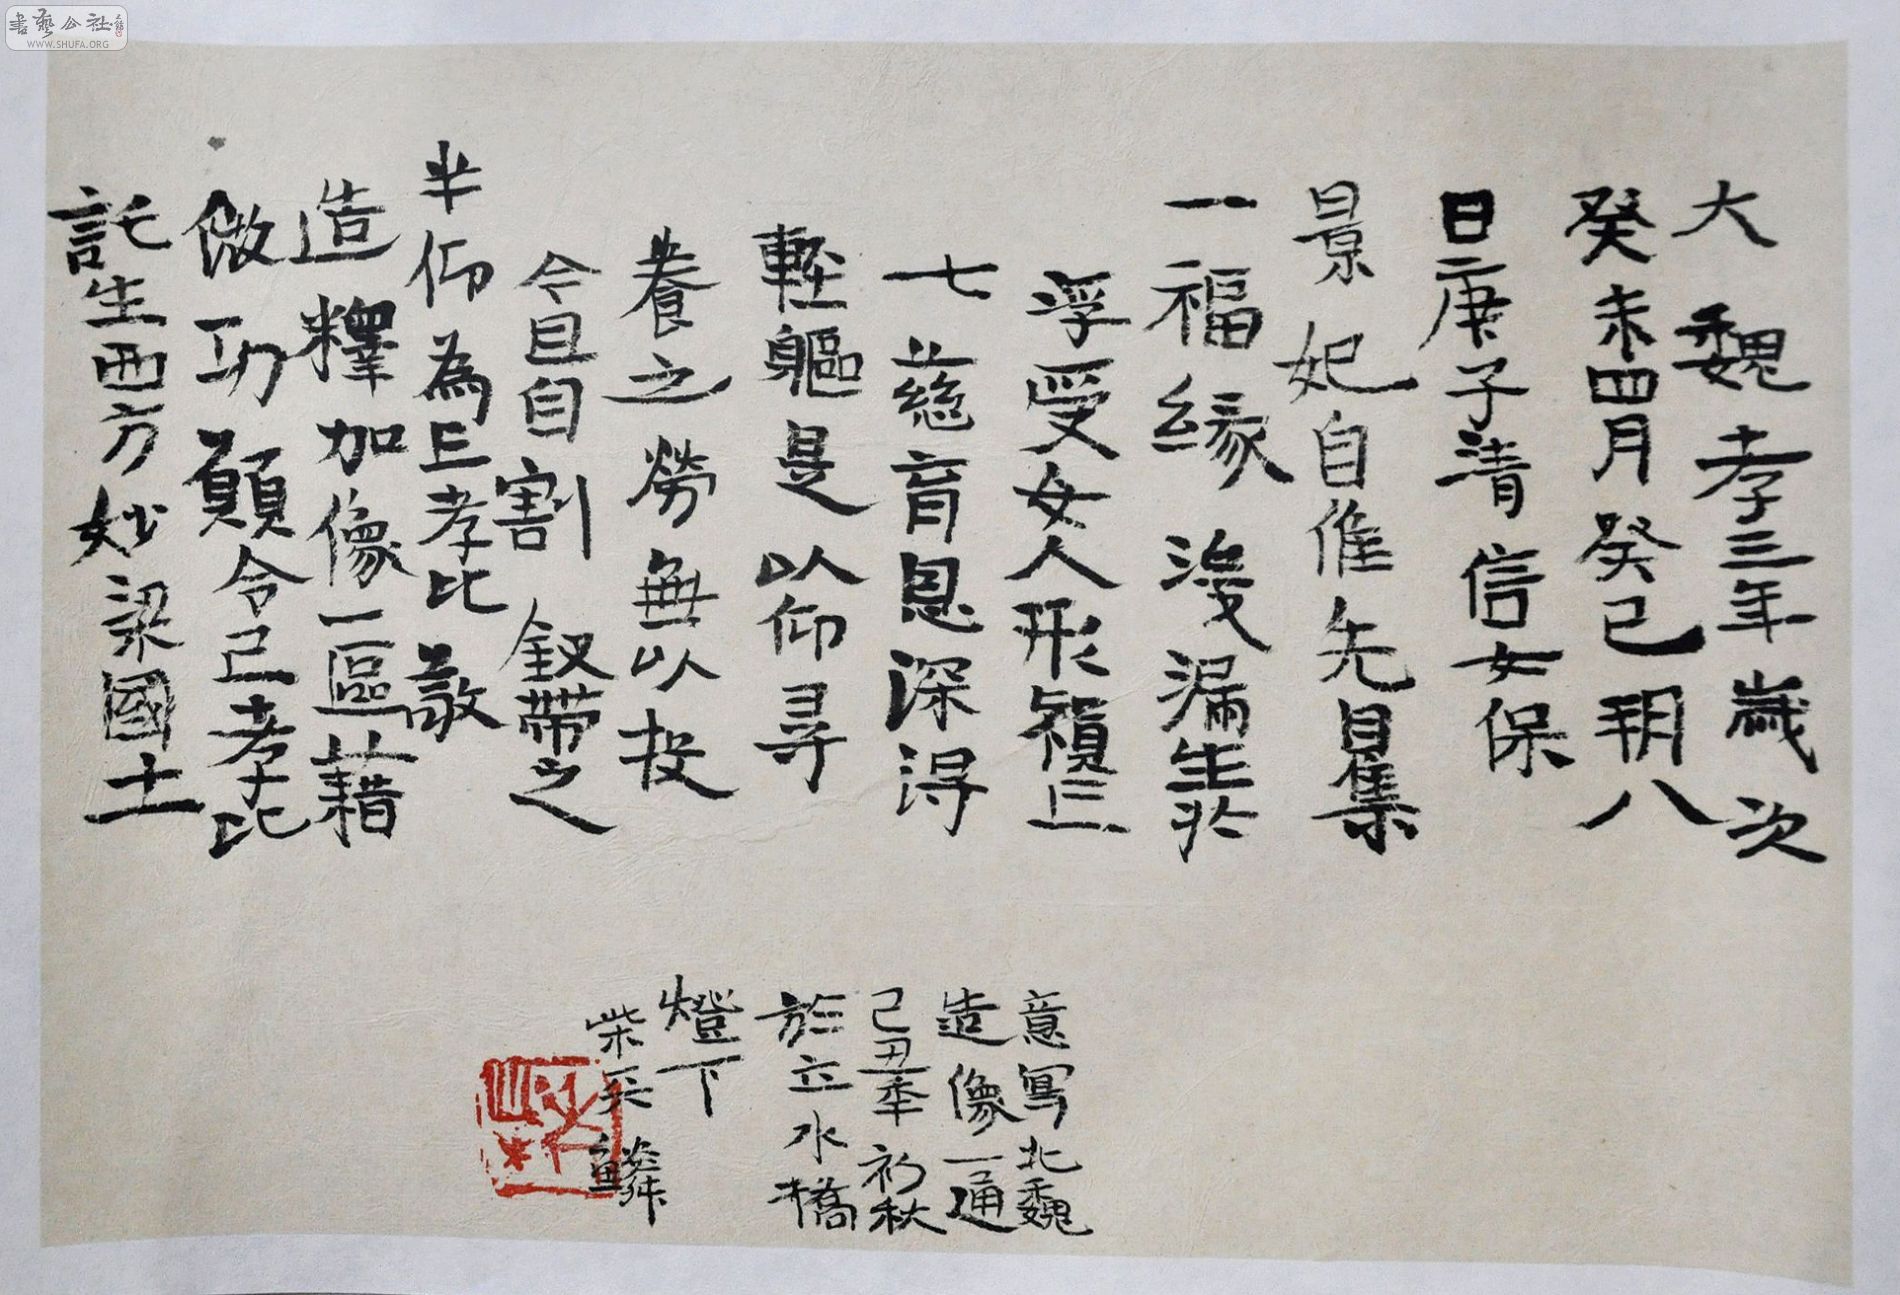 大魏孝三年歲次
癸未四月癸巳朔八
日庚子清信女保
景妃自惟先因集
一福緣浅漏生於
浮受女人形賴亡
七慈育恩深得
輕軀是以仰尋
養之勞無以投
今且自割釵帶之
半仰為亡孝比敬
造釋加像一區藉
做功願令亡孝比
託生西方妙梁國土
意寫北魏
造像一通
己丑年初秋
於立水橋
燈下
柴天鱗
書藝公社
WWW.SHUFA.ORG